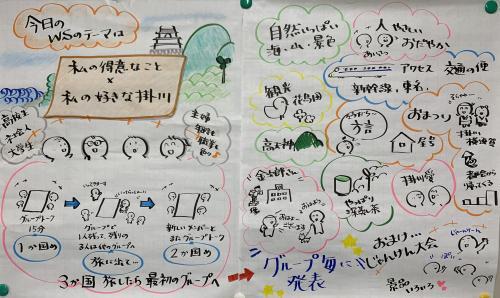 今日の
WSのテーマは
私の得意なこと
×
私の好きな掛川
高校生
社会人
大学生
主婦
グループトーク
15分
1か国め
グループで
1人残って、残りの
3人は他のグループへ
旅に出て…
新しいメンバーと
またグループトーク
2か国め
3か国 旅したら 最初のグループへ
自然いっぱい
海・山・景色
人 やさしい
おだやか
あいさつ
アクセス 交通の便
新幹線、東名、
観光
花鳥園
方言
おまつり
高天神
金次郎さん
おはよう
やっぱり
深蒸し茶
掛川愛
グループ毎に
発表
おまけ…
じゃんけん大会
じゃんけーん
景品
いろいろ